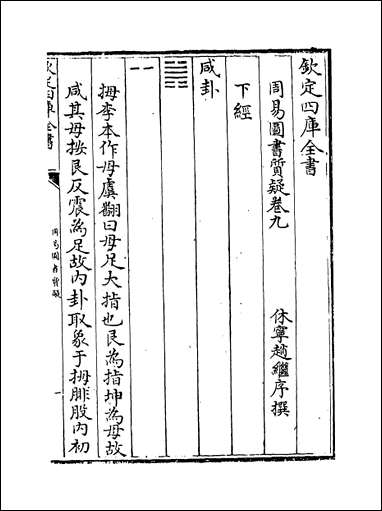 欽定四庫全書
周易圖書質疑卷九
休寧趙繼序撰
下經
咸卦
拇李本作母虞翻曰母足大指也艮為指坤為母故
咸其母按艮反震為足故内卦取象于拇腓股内初
欽定四庫全書
周易圖書質疑
一